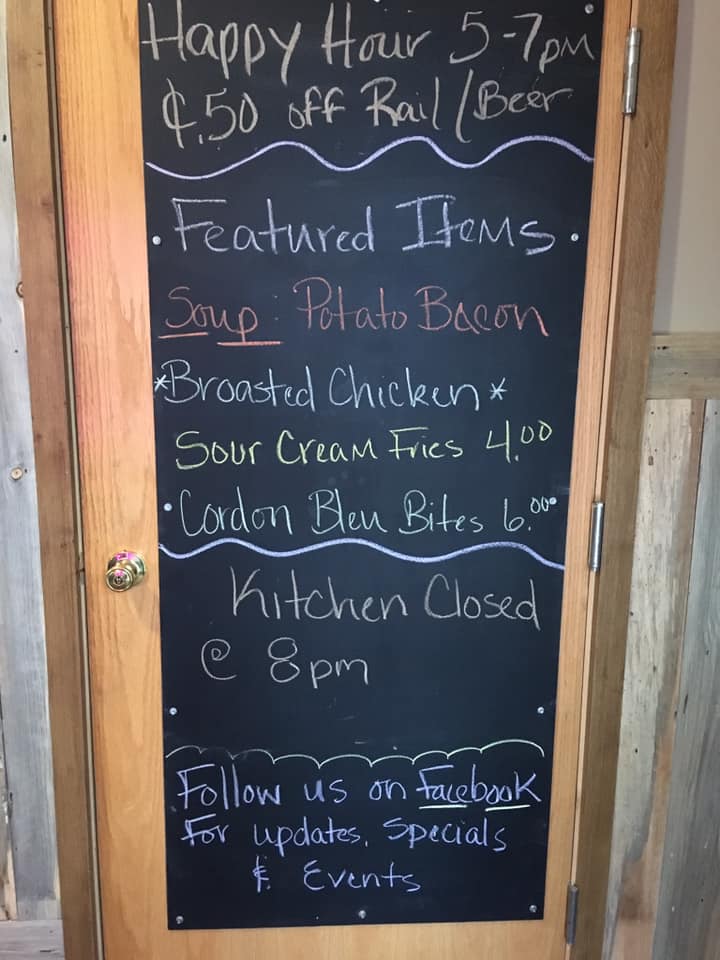 Happy Hour 5-7pm
¢.50 off Rail/Beer
Featured Items
Soup: Potato Bacon
*Broasted Chicken*
Sour Cream Fries 4.00
Cordon Bleu Bites 6.00
Kitchen Closed
@ 8pm
Follow us on Facebook
For updates, Specials
& Events